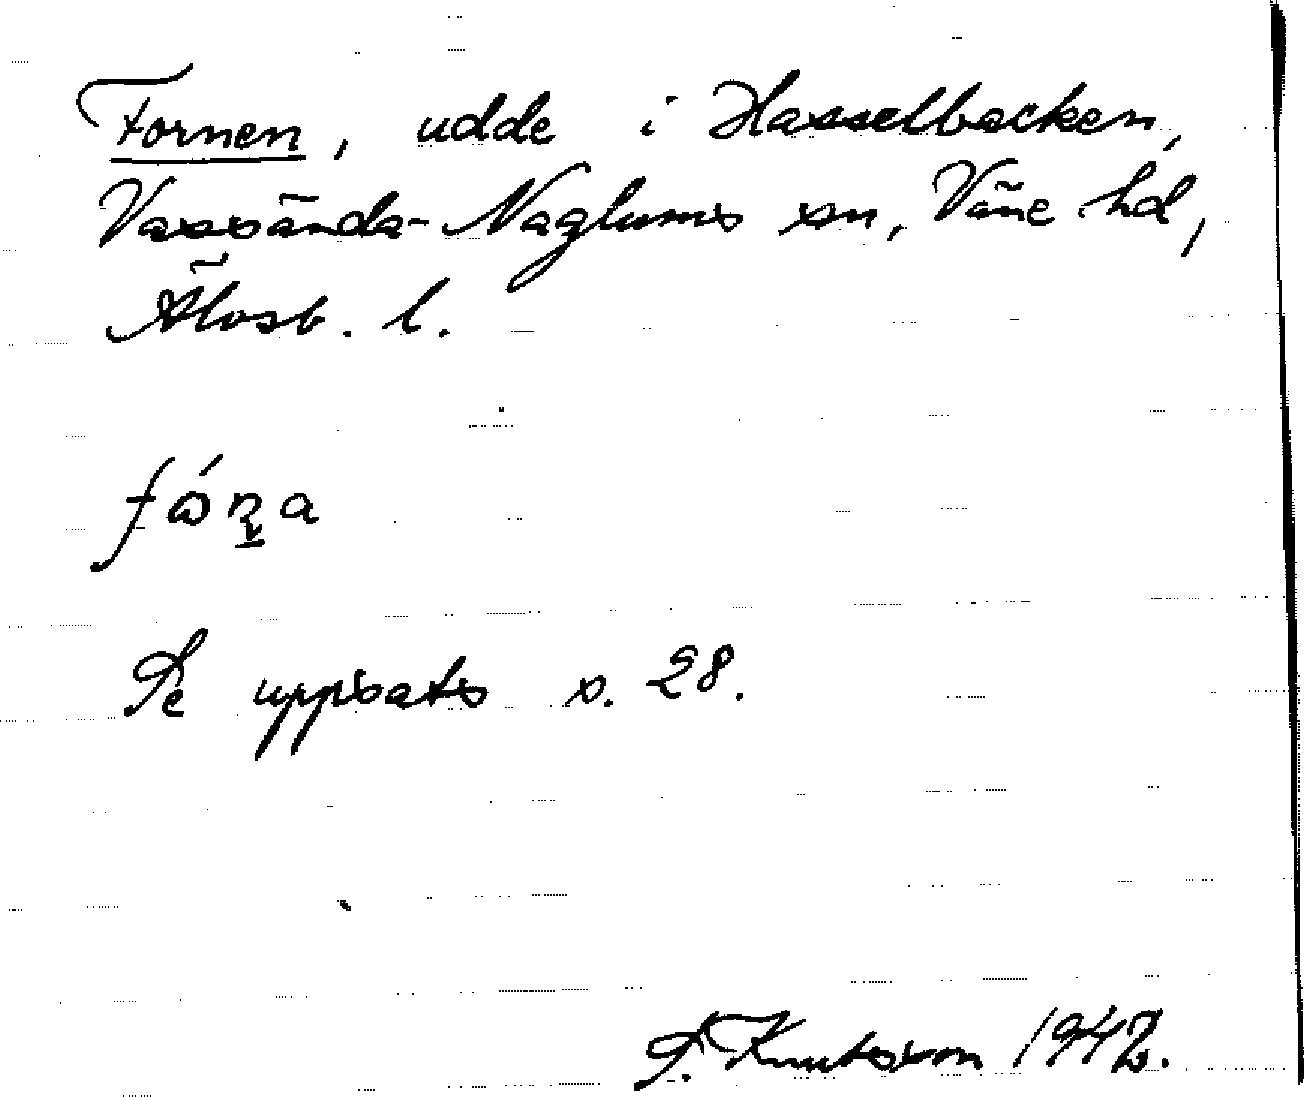 Fornen, udde i Hasselbacken,
Vassända-Naglums sn, Väne hd,
Älvsb. l.
Se uppsats s. 28.
S. Knutsson 1947.